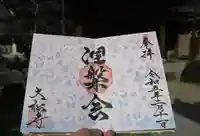 奉拝 令和五年二月十一日
涅槃会
大龍寺